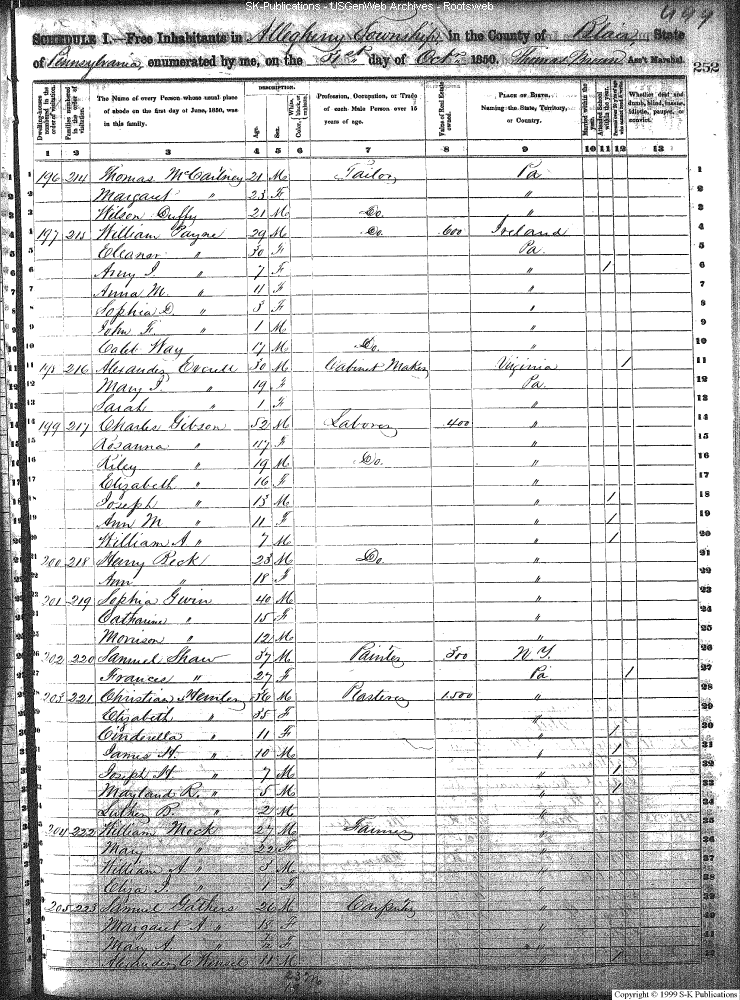 SK-Publications - USGenWeb Archives - Rootsweb
499
SCHEDULE I.—Free Inhabitants in Allegheny Township in the County of Blair State
of Pennsylvania, enumerated by me, on the day of Octr 1850. Thomas Ass't Marshal.
252
Dwelling-houses numbered in the order of visitation.
Families numbered in the order of visitation.
The Name of every Person whose usual place of abode on the first day of June, 1850, was in this family.
DESCRIPTION.
Age.
Sex.
Color, White, black, or mulatto.
Profession, Occupation, or Trade of each Male Person over 15 years of age.
Value of Real Estate owned.
PLACE OF BIRTH. Naming the State, Territory, or Country.
Married within the year.
Attended School within the year.
Whether deaf and dumb, blind, insane, idiotic, pauper, or convict.
1 2 3 4 5 6 7 8 9 10 11 12 13
1 196 214 Thomas McCartney 21 M Tailor Pa 1
2 Margaret " 23 F " 2
3 Wilson Duffy 21 M Do. " 3
4 197 215 William Payne 29 M Do. 600 Ireland 4
5 Eleanor " 30 F Pa. 5
6 " 7 F " 1 6
7 Anna M. " 11 F " 7
8 Sophia D. " 3 F " 8
9 John F. " 1 M " 9
10 Caleb Way 17 M Do. " 10
11 198 216 Alexander Everett 30 M Cabinet Maker Virginia 1 11
12 Mary J. " 19 F Pa. 12
13 Sarah " 1 F " 13
14 199 217 Charles Gibson 52 M Laborer 400 " 14
15 Rosanna " 47 F " 15
16 Riley " 19 M Do. " 16
17 Elizabeth " 16 F " 17
18 Joseph " 13 M " 1 18
19 Ann M " 11 F " 1 19
20 William A " 7 M " 1 20
21 200 218 Harry Beck 23 M Do. " 21
22 Ann " 18 F " 22
23 201 219 Sophia Gwin 40 M " 23
24 Catharine " 15 F " 24
25 Morrison " 12 M " 25
26 202 220 Samuel Shaw 37 M Painter 300 N.Y 26
27 Frances " 27 F Pa 1 27
28 203 221 Christian 36 M Plasterer 1500 " 28
29 Elizabeth " 35 F " 29
30 Cinderella " 11 F " 1 30
31 James H. " 10 M " 1 31
32 Joseph H. " 7 M " 1 32
33 Mayland R. " 5 M " 1 33
34 Luther B. " 2 M " 34
35 204 222 William Meck 27 M Farmer " 35
36 Mary " 22 F " 36
37 William A " 3 M " 37
38 Eliza J. " 1 F " 38
39 205 223 Samuel Gathers 26 M Carpenter " 39
40 Margaret A " 18 F " 40
41 Mary A. " F " 41
42 Alexander C. 11 M " 1 42
Copyright © 1999 S-K Publications